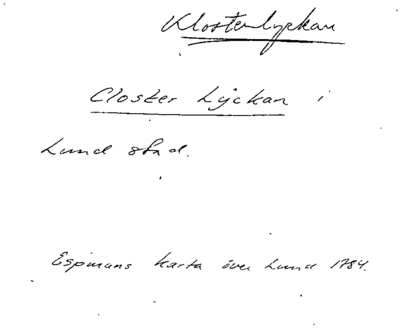 Klosterlyckan
Closter Lÿckan i
Lund stad.
Espmans karta över Lund 1784.